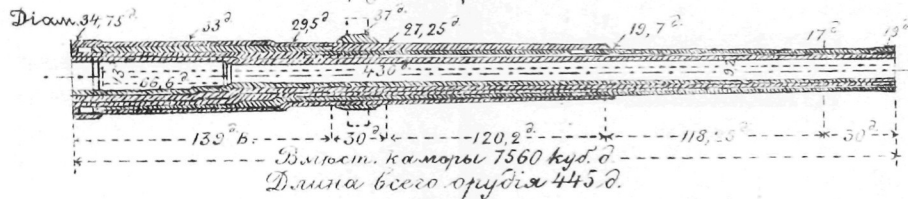 Diam. 34,75д 33д 29,5д 37д 27,25д 19,7д 17д 19д
66,6д 430д
139д b. 30д 120,2д 118,25д 30д
Вмѣст. каморы 7560 куб. д.
Длина всего орудія 445 д.